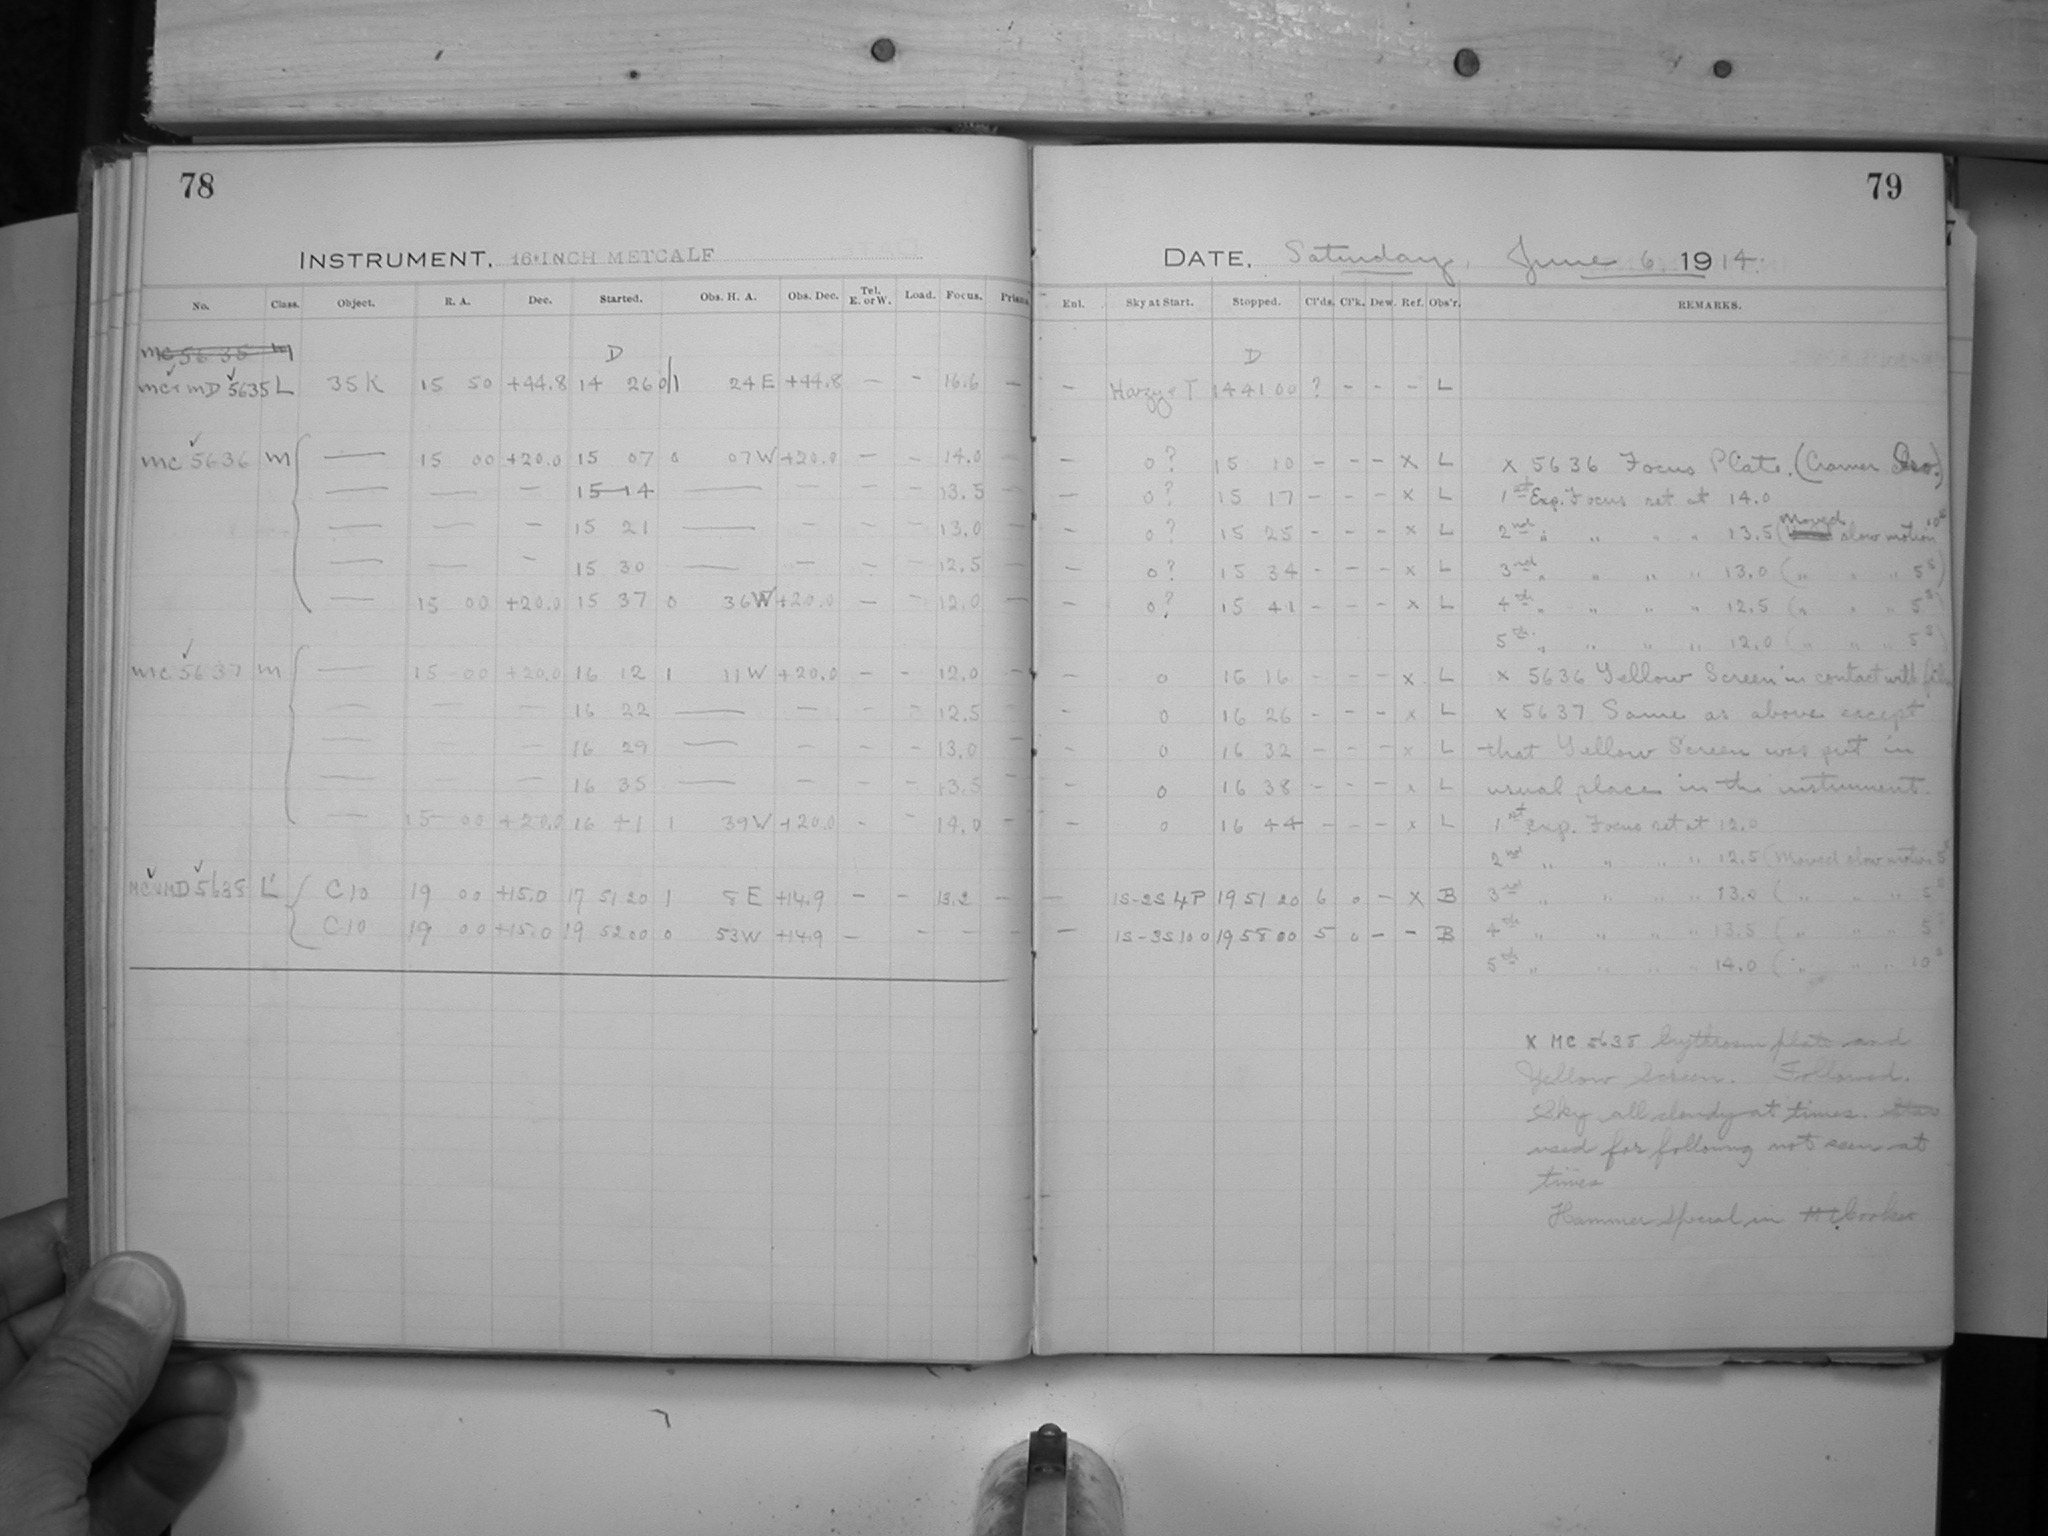 78
INSTRUMENT, 16-INCH METCALF
No. Class. Object. R. A. Dec. Started. Obs. H. A. Obs. Dec. Tel. E. or W. Load. Focus. Prism
MC 5635 M
D
MC + MD 5635 L 35 K 15 50 +44.8 14 26 0 1 24 E +44.8 — — 16.6 —
MC 5636 M — 15 00 +20.0 15 07 0 07 W +20.0 — — 14.0 —
— — — 15 14 — — — — 13.5 —
— — — 15 21 — — — — 13.0
— — — 15 30 — — — — 12.5
— 15 00 +20.0 15 37 0 36 W +20.0 — — 12.0 —
MC 5637 M — 15 00 +20.0 16 12 1 11 W +20.0 — - 12.0 —
— — — 16 22 — — — - 12.5
— — — 16 29 — — — — 13.0
— — — 16 35 — — — — 13.5
— 15 00 +20.0 16 41 1 39 W +20.0 - - 14.0 —
MC + MD 5638 L C 10 19 00 +15.0 17 51 20 1 8 E +14.9 — — 13.2 —
C 10 19 00 +15.0 19 52 00 0 53 W +14.9 — - - -
79
DATE, Saturday, June 6, 1914.
Enl. Sky at Start. Stopped. Cl'ds. Cl'k. Dew. Ref. Obs'r. REMARKS.
D
— Hazy + T 14 41 00 ? - - - L
— 0? 15 10 - - - x L x 5636 Focus Plate. (Cramer Iso.)
— 0? 15 17 - - - x L 1st Exp. Focus set at 14.0
— 0? 15 25 - - - x L 2nd " " " " 13.5 (Moved slow motion 10s
— 0? 15 34 - - - x L 3rd " " " " 13.0 ( " " " 5s)
— 0? 15 41 - - - x L 4th " " " " 12.5 ( " " " 5s)
5th " " " " 12.0 ( " " " 5s)
— 0 16 16 - - - x L x 5636 Yellow Screen in contact with film
0 16 26 - - - x L x 5637 Same as above except
— 0 16 32 - - - x L that Yellow Screen was put in
— 0 16 38 - - - x L usual place in the instrument.
— 0 16 44 - - - x L 1st Exp. Focus set at 12.0
2nd " " " " 12.5 (Moved slow motion 5s
— 1S-2S 4P 19 51 20 6 0 - X B 3rd " " " " 13.0 ( " " " 5s
— 1S-3S 10 0 19 58 00 5 0 - - B 4th " " " " 13.5 ( " " " 5s
5th " " " " 14.0 ( " " " 10s
X MC 5638 Erythrosin plate and
Yellow Screen. Followed.
Sky all cloudy at times. Star
used for following not seen at
times
Hammer Special in